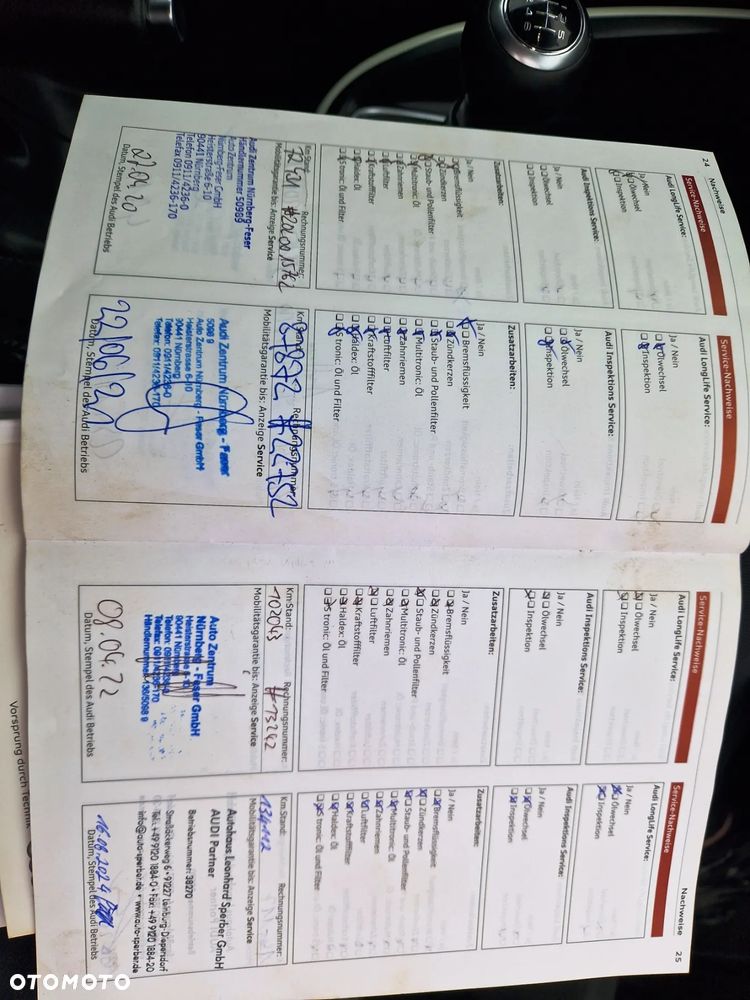 24
Nachweise
Service-Nachweise
Audi LongLife Service:
Ja / Nein
Ölwechsel
Inspektion
Audi Inspektions Service:
Ja / Nein
Ölwechsel
Inspektion
Zusatzarbeiten:
Ja / Nein
Bremsflüssigkeit
Zündkerzen
Staub- und Pollenfilter
Multitronic: Öl
Zahnriemen
Luftfilter
Kraftstofffilter
Haldex: Öl
S tronic: Öl und Filter
Km-Stand:
Rechnungsnummer:
Mobilitätsgarantie bis: Anzeige Service
Audi Zentrum Nürnberg-Feser
Händlernummer 50989
Auto Zentrum
Nürnberg-Feser GmbH
Heisterstraße 6-10
90441 Nürnberg
Telefon 0911/4236-0
Telefax 0911/4236-170
Datum, Stempel des Audi Betriebs
Service-Nachweise
Audi LongLife Service:
Ja / Nein
Ölwechsel
Inspektion
Audi Inspektions Service:
Ja / Nein
Ölwechsel
Inspektion
Zusatzarbeiten:
Ja / Nein
Bremsflüssigkeit
Zündkerzen
Staub- und Pollenfilter
Multitronic: Öl
Zahnriemen
Luftfilter
Kraftstofffilter
Haldex: Öl
S tronic: Öl und Filter
Km-Stand:
Rechnungsnummer:
Mobilitätsgarantie bis: Anzeige Service
Audi Zentrum Nürnberg - Feser
5098 9
Auto Zentrum Nürnberg - Feser GmbH
Heisterstrasse 6-10
90441 Nürnberg
Telefon: 0911/4236-0
Telefax: 0911/4236-170
Datum, Stempel des Audi Betriebs
Service-Nachweise
Audi LongLife Service:
Ja / Nein
Ölwechsel
Inspektion
Audi Inspektions Service:
Ja / Nein
Ölwechsel
Inspektion
Zusatzarbeiten:
Ja / Nein
Bremsflüssigkeit
Zündkerzen
Staub- und Pollenfilter
Multitronic: Öl
Zahnriemen
Luftfilter
Kraftstofffilter
Haldex: Öl
S tronic: Öl und Filter
Km-Stand:
Rechnungsnummer:
103043
#13242
Mobilitätsgarantie bis: Anzeige Service
Auto Zentrum
Nürnberg - Feser GmbH
Heisterstraße 6-10
90441 Nürnberg
08.04.22
Datum, Stempel des Audi Betriebs
Nachweise
25
Service-Nachweise
Audi LongLife Service:
Ja / Nein
Ölwechsel
Inspektion
Audi Inspektions Service:
Ja / Nein
Ölwechsel
Inspektion
Zusatzarbeiten:
Ja / Nein
Bremsflüssigkeit
Zündkerzen
Staub- und Pollenfilter
Multitronic: Öl
Zahnriemen
Luftfilter
Kraftstofffilter
Haldex: Öl
S tronic: Öl und Filter
Km-Stand:
Rechnungsnummer:
Mobilitätsgarantie bis: Anzeige Service
Autohaus Leonhard Sperber GmbH
AUDI Partner
Betriebsnummer: 38270
Tel. +49 9120 1884-0 • Fax +49 9120 1884-20
info@auto-sperber.de • www.auto-sperber.de
Datum, Stempel des Audi Betriebs
Vorsprung durch Technik
OTOMOTO